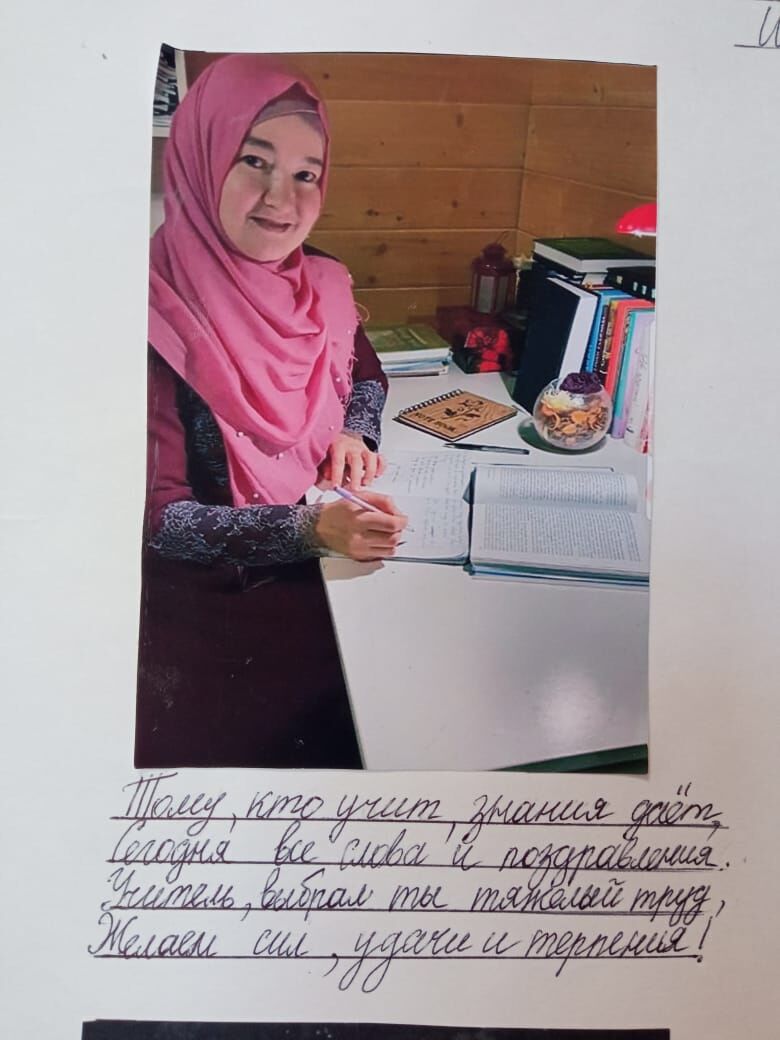 И
NOTE BOOK
Тому, кто учит, знания даёт,
Сегодня все слова и поздравления.
Учитель, выбрал ты тяжелый труд,
Желаем сил, удачи и терпения!